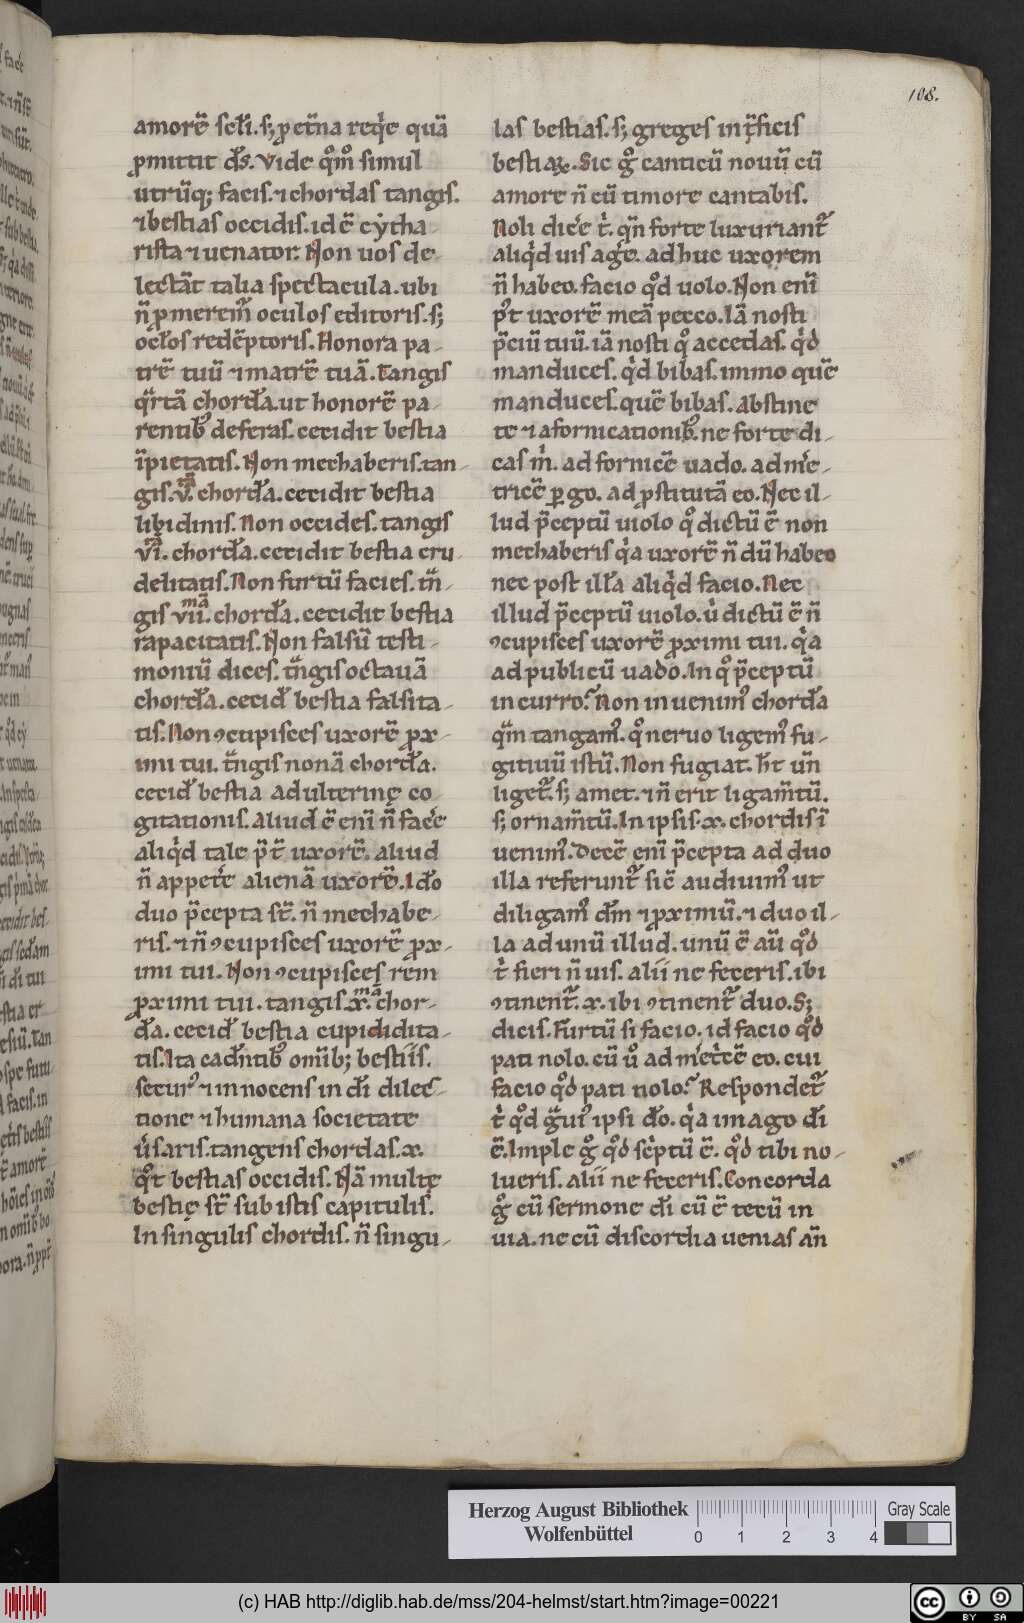 108.
amorē sc̄li. s; p etn̄a reqͥe quā
pmittit d̄s. Vide qͦmͦ simul
utrūq; facis. ⁊ chordas tangis.
⁊ bestias occidis. id ē cẏtha
rista ⁊ uenator. Non uos de-
lectāt talia spectacula. ubi
n̄ pmerem̄ oculos editoris. s;
oc̄los redēptoris. Honora pa-
trē tuū ⁊ matrē tuā. Tangis
qͣrtā chord̄a. ut honorē pa-
rentibꝰ deferas. cecidit bestia
īpietatis. Non mechaberis. tan-
gis .v.tā chord̄a. cecidit bestia
libidinis. Non occides. tangis
vi.tā chord̄a. cecidit bestia cru-
delitatis. Non furtū facies. tn̄-
gis vii.mā chord̄a. cecidit bestia
rapacitatis. Non falsū testi-
moniū dices. tͣngis octauā
chord̄a. cecid̄ bestia falsita-
tis. Non ꝯcupisces uxorē prox-
imi tui. tͣngis nonā chorda.
cecid̄ bestia adulterinę co-
gitationis. Aliud ē enī n̄ facͤe
aliqͥd tale p̄t uxorē. aliud
n̄ appetͤe alienā uxorē. Id̄o
duo p̄cepta st̄. n̄ mechabe-
ris. ⁊ n̄ ꝯcupisces uxorē prox-
imi tui. Non ꝯcupisces rem
proximi tui. tangis .x.mā chor-
d̄a. cecid̄ bestia cupididita-
tis. Ita cad̄ntibꝰ omīb; bestiis.
securꝰ ⁊ innocens in d̄i dilec-
tione ⁊ humana societate
ūsaris. tangens chordas .x.
qͦt bestias occidis. Nā multę
bestię st̄ sub istis capitulis.
In singulis chordis. n̄ singu-
las bestias. s; greges int̄ficis
bestiaꝝ. Sic gͦ canticū nouū cū
amore n̄ cū timore cantabis.
Noli dicͤe tͥ. qn̄ forte luxuriant᷑
aliqͥd uis agͤe. adhuc uxorem
n̄ habeo. facio qͦd uolo. Non enī
p̄t uxorē meā pecco. Iā nosti
p̄ciū tuū. iā nosti qͦ accedas. qͥd
manduces. qͥd bibas. immo quē
manduces. quē bibas. Abstine
te ⁊ a fornicationibꝰ. ne forte di-
cas mͥ. ad fornicē uado. ad mͤe-
tricē pgo. ad pstitutā eo. Nec il-
lud p̄ceptū uiolo qͦ dictū ē non
mechaberis qͥa uxorē n̄ dū habeo
nec post ill̄a aliqͥd facio. Nec
illud p̄ceptū uiolo. uͥ dictū ē n̄
ꝯcupisces uxorē proximi tui. qͥa
ad publicū uado. In qͦ p̄ceptū
incurro? Non inuenimꝰ chord̄a
qͣm tangamꝰ. qͦ neruo ligemꝰ fu-
gitiuū istū. Non fugiat. h̄t un̄
liget᷑. s; amet. ⁊ n̄ erit ligam̄tū.
s; ornam̄tū. In ipsis .x. chordis ī
uenimꝰ. Decē enī p̄cepta ad duo
illa referunt᷑ sic̄ audiuimꝰ ut
diligamꝰ d̄m ⁊ proximū. ⁊ duo il-
la ad unū illud. unū ē aū qͦd
tͥ fieri n̄ uis. alii ne feceris. ibi
ꝯtinent᷑ .x. ibi ꝯtinent᷑ duo. S;
dicis. Furtū si facio. id facio qͦd
pati nolo. cū uͦ ad mͤetͥcē eo. cui
facio qͦd pati nolo? Respondet᷑
tͥ qͦd gͣuiꝰ ipsi d̄o. qͥa imago d̄i
ē. Imple gͦ qͦd scͥptū ē. qͦd tibi no-
lueris. alii ne feceris. Concorda
gͦ cū sermone d̄i cū ē tecū in
uia. ne cū discordia uenias an̄
Herzog August Bibliothek
Wolfenbüttel
0 1 2 3 4
Gray Scale
(c) HAB http://diglib.hab.de/mss/204-helmst/start.htm?image=00221
cc BY SA